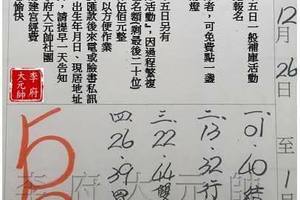 12月26日至1
五日一般補庫活動
報名
者，可免費點一盞
燈
五日另有
活動」，因過程繁複
名額(剩最後二十位)
伍佰元整
以方便作業
匯款後來電或臉書私訊
出生年月日、現居地址
，請提早一天告知
府大元帥社團
建宮經費
愉快
李府大元帥
一.01.40結
二.13.32行
三.22.44雙
四.26.39
李府大元帥